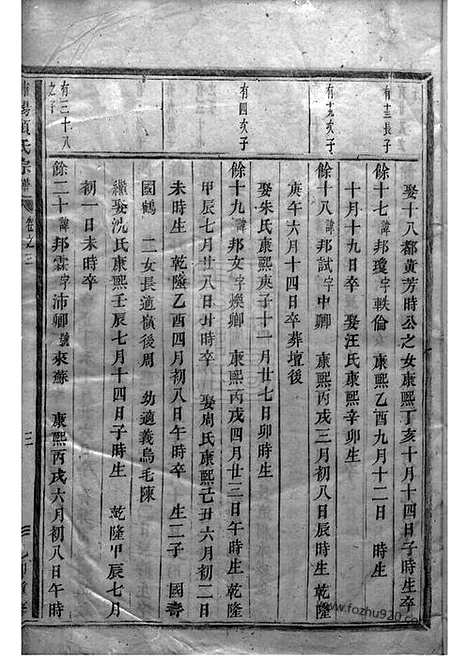 娶十八都黃芳時公之女康熙丁亥十月十四日子時生卒
有三長子
餘十七諱邦瓊字軼倫 康熙乙酉九月十二日 時生
十月十九日卒 娶汪氏康熙辛卯生
有九次子
餘十八諱邦試字中卿 康熙丙戌三月初八日辰時生
庚午六月十四日卒葬壇後
娶朱氏康熙庚子十一月廿七日卯時生
有四次子
餘十九諱邦文字煥卿 康熙丙戌四月廿三日午時生乾隆
甲辰七月廿八日丑時卒 娶周氏康熙己丑六月初二日
未時生 乾隆乙酉四月初八日午時卒 生二子 國壽
國鶴 二女長適嶽後周 幼適義烏毛陳
繼娶沈氏康熙壬辰七月十四日子時生 乾隆甲辰七月
初一日未時卒
有三十八之子
餘二十諱邦霖字沛卿號來蘇 康熙丙戌六月初八日午時
陽項氏宗譜 卷之三 三
www.fozhu920.com